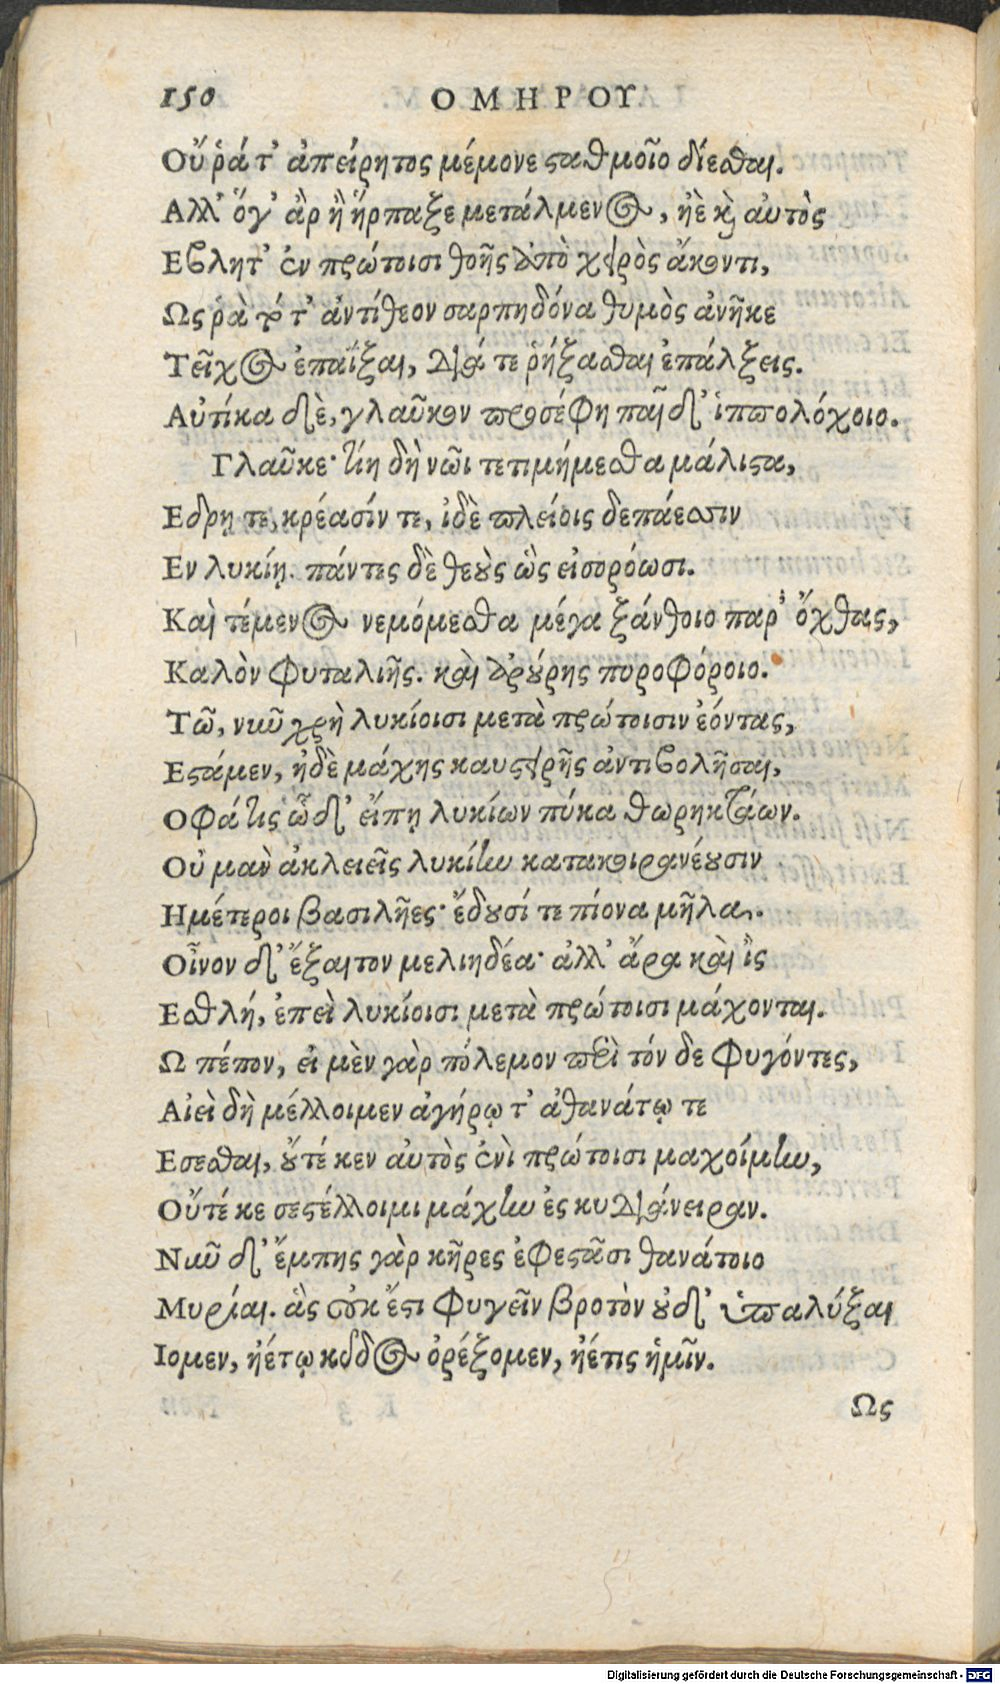 150 ΟΜΗΡΟΥ
Οὔ ῥά τ' ἀπείρητος μέμονε σταθμοῖο δίεσθαι.
Αλλ' ὅγ' ἂρ ἢ ἥρπαξε μετάλμενος, ἠὲ καὶ αὐτὸς
Εβλητ' ἐν πρώτοισι θοῆς ἀπὸ χειρὸς ἄκοντι,
Ως ῥὰ τότ' ἀντίθεον σαρπηδόνα θυμὸς ἀνῆκε
Τεῖχος ἐπαΐξαι, διά τε ῥήξασθαι ἐπάλξεις.
Αὐτίκα δὲ, γλαῦκον προσέφη παῖδ' ἱππολόχοιο.
Γλαῦκε· τίη δὴ νῶι τετιμήμεσθα μάλιστα,
Εδρῃ τε, κρέασίν τε, ἰδὲ πλείοις δεπάεσσιν
Εν λυκίῃ. πάντες δὲ θεοὺς ὣς εἰσορόωσι.
Καὶ τέμενος νεμόμεσθα μέγα ξάνθοιο παρ' ὄχθας,
Καλὸν φυταλιῆς. καὶ ἀρούρης πυροφόροιο.
Τῶ, νῦν χρὴ λυκίοισι μετὰ πρώτοισιν ἐόντας,
Εστάμεν, ἠδὲ μάχης καυστειρῆς ἀντιβολῆσαι,
Οφρά τις ὧδ' εἴπῃ λυκίων πύκα θωρηκτάων.
Οὐ μαν ἀκλειεῖς λυκίην κατακοιρανέουσιν
Ημέτεροι βασιλῆες· ἔδουσί τε πίονα μῆλα.
Οἶνον δ' ἔξαιτον μελιηδέα· ἀλλ' ἄρα καὶ ἲς
Εσθλή, ἐπεὶ λυκίοισι μετὰ πρώτοισι μάχονται.
Ω πέπον, εἰ μὲν γὰρ πόλεμον περὶ τόν δε φυγόντες,
Αἰεὶ δὴ μέλλοιμεν ἀγήρῳ τ' ἀθανάτῳ τε
Εσεσθαι, οὔτέ κεν αὐτὸς ἐνὶ πρώτοισι μαχοίμην,
Οὔτέ κε σε στέλλοιμι μάχην ἐς κυδιάνειραν.
Νῦν δ' ἔμπης γὰρ κῆρες ἐφεστᾶσι θανάτοιο
Μυρίαι. ἃς οὐκ ἔστι φυγεῖν βροτὸν οὐδ' ὑπαλύξαι
Ιομεν, ἠέ τῳ κῦδος ὀρέξομεν, ἠέ τις ἡμῖν.
Ως
Digitalisierung gefördert durch die Deutsche Forschungsgemeinschaft - DFG